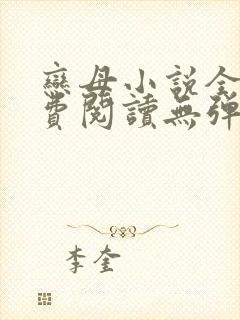 戀母小說全
費閱讀無彈
李奎